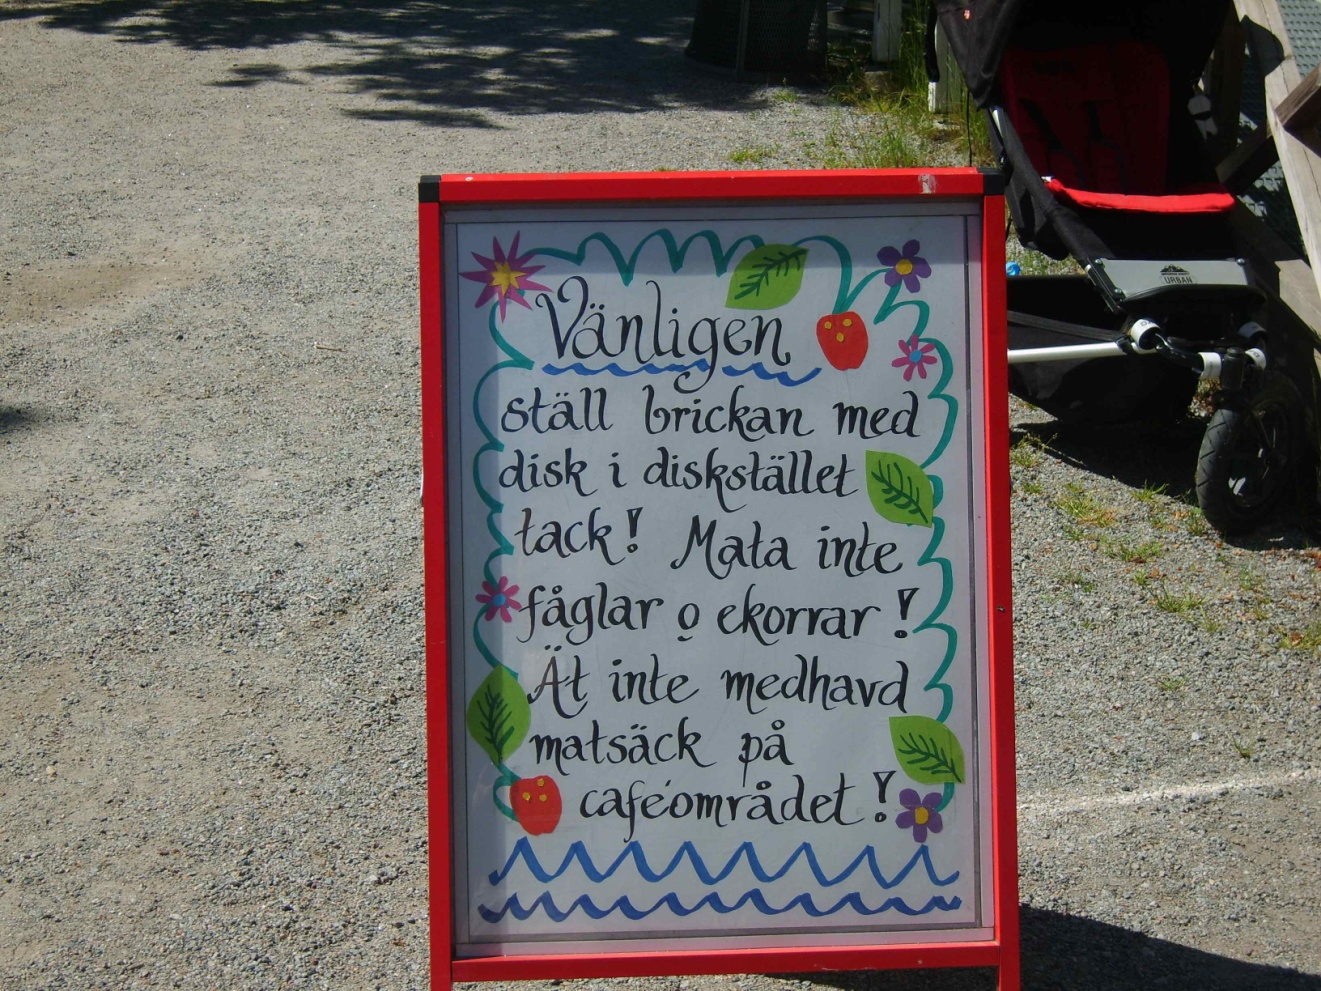 Vänligen
ställ brickan med
disk i diskstället
tack! Mata inte
fåglar o ekorrar!
Ät inte medhavd
matsäck på
caféområdet!
URBAN